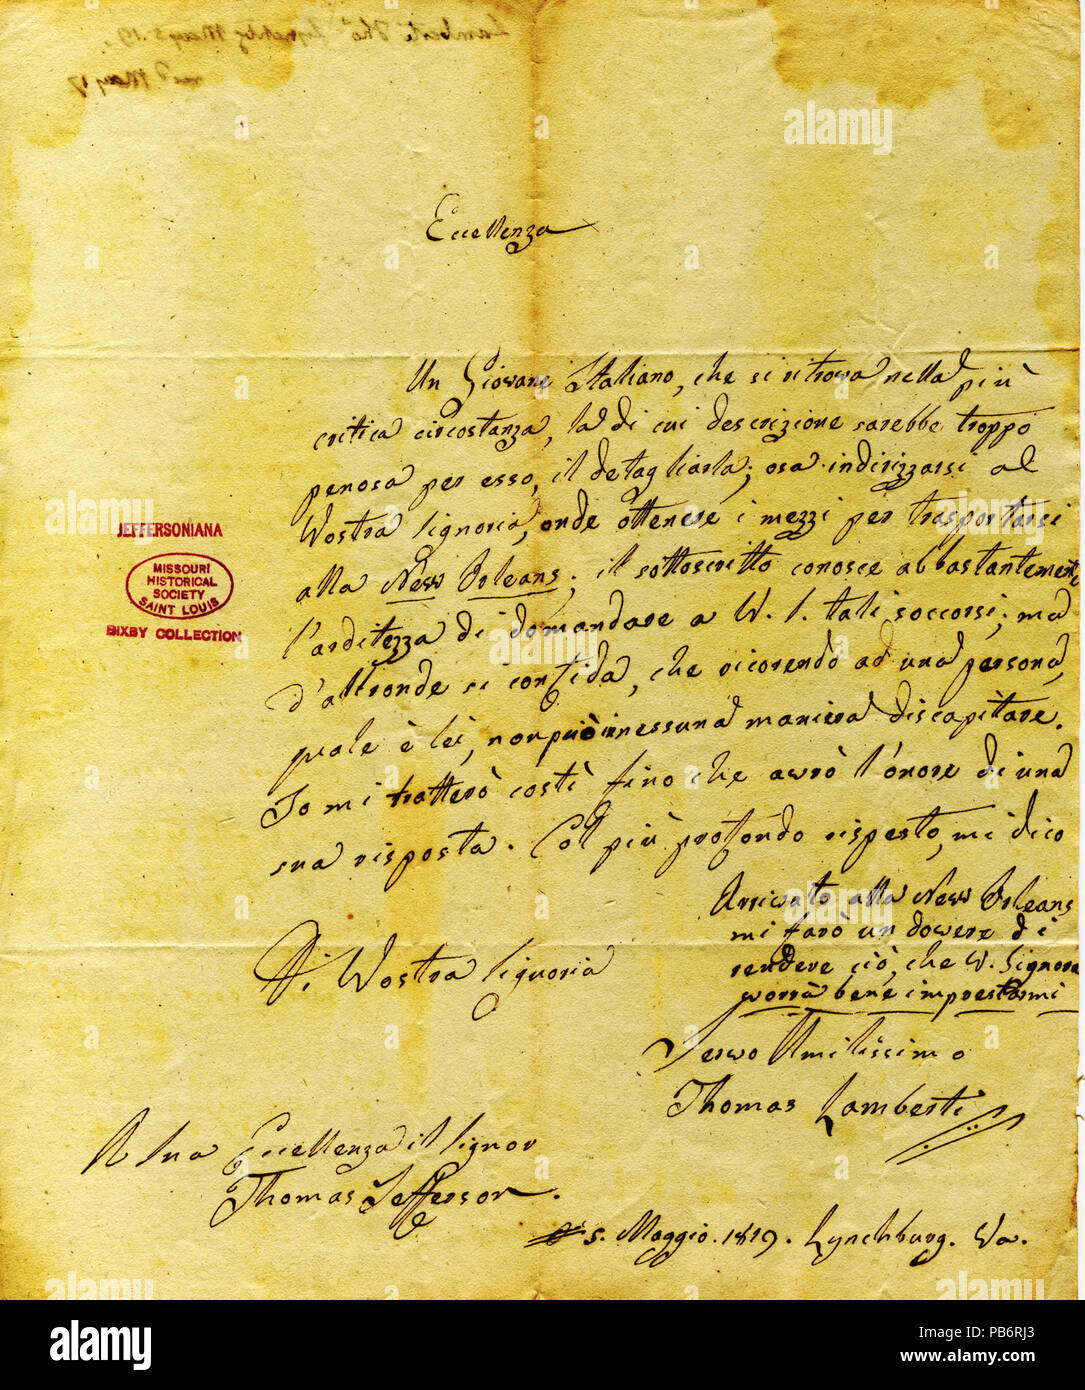 Eccellenza
Un Giovane Italiano, che si ritrova nella più
critica circostanza, la di cui descrizione sarebbe troppo
penosa per esso, il detagliarla; osa indirizzarsi al
Wostra Signoria, onde ottenere i mezzi per trasportarsi
alla New Orleans; il sottoscritto conosce abbastantemente
l'arditezza di domandare a W. S. tali soccorsi; ma
d'altronde si confida, che ricorendo ad una persona,
quale è lei, non può in nessuna maniera discapitare.
Io mi tratterò costì fino che awrò l'onore di una
sua risposta. Col più profondo rispesto, mi dico
Arrivato alla New Orleans
mi farò un dowere di
rendere ciò, che W. Signora
worrà bene imprestarmi
Di Wostra Signoria
Serwo Umilissimo
Thomas Lamberti
A Sua Eccellenza il Signor
Thomas Jefferson.
5. Maggio. 1819. Lynchburg. Va.
JEFFERSONIANA
MISSOURI
HISTORICAL
SOCIETY
SAINT LOUIS
BIXBY COLLECTION
Lamberti Tho.^s Lynchbg May 5. 19.
rec.^d May 17
alamy
alamy
Image ID: PB6RJ3
www.alamy.com